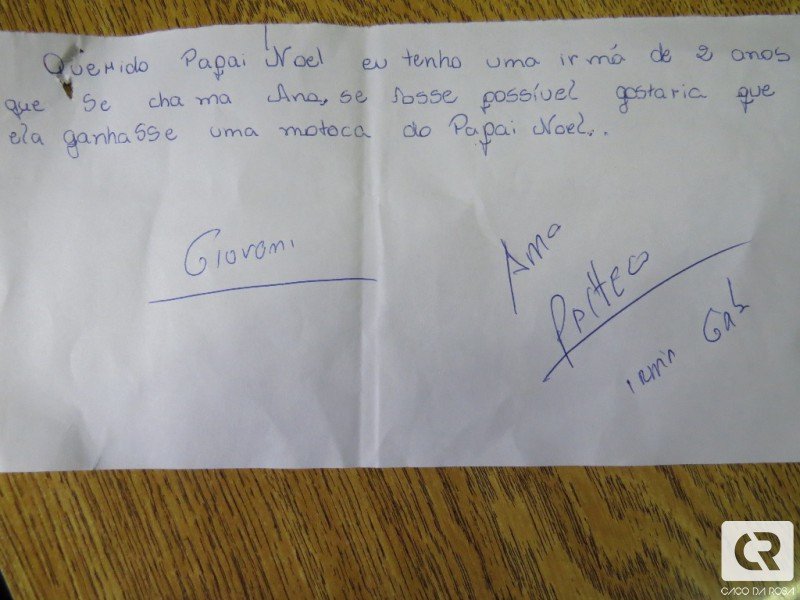 Querido Papai Noel eu tenho uma irmã de 2 anos
que se chama Ana, se fosse possível gostaria que
ela ganhasse uma motoca do Papai Noel..
Giovani
Ana
irmin Gab
CR
CACO DA ROSA